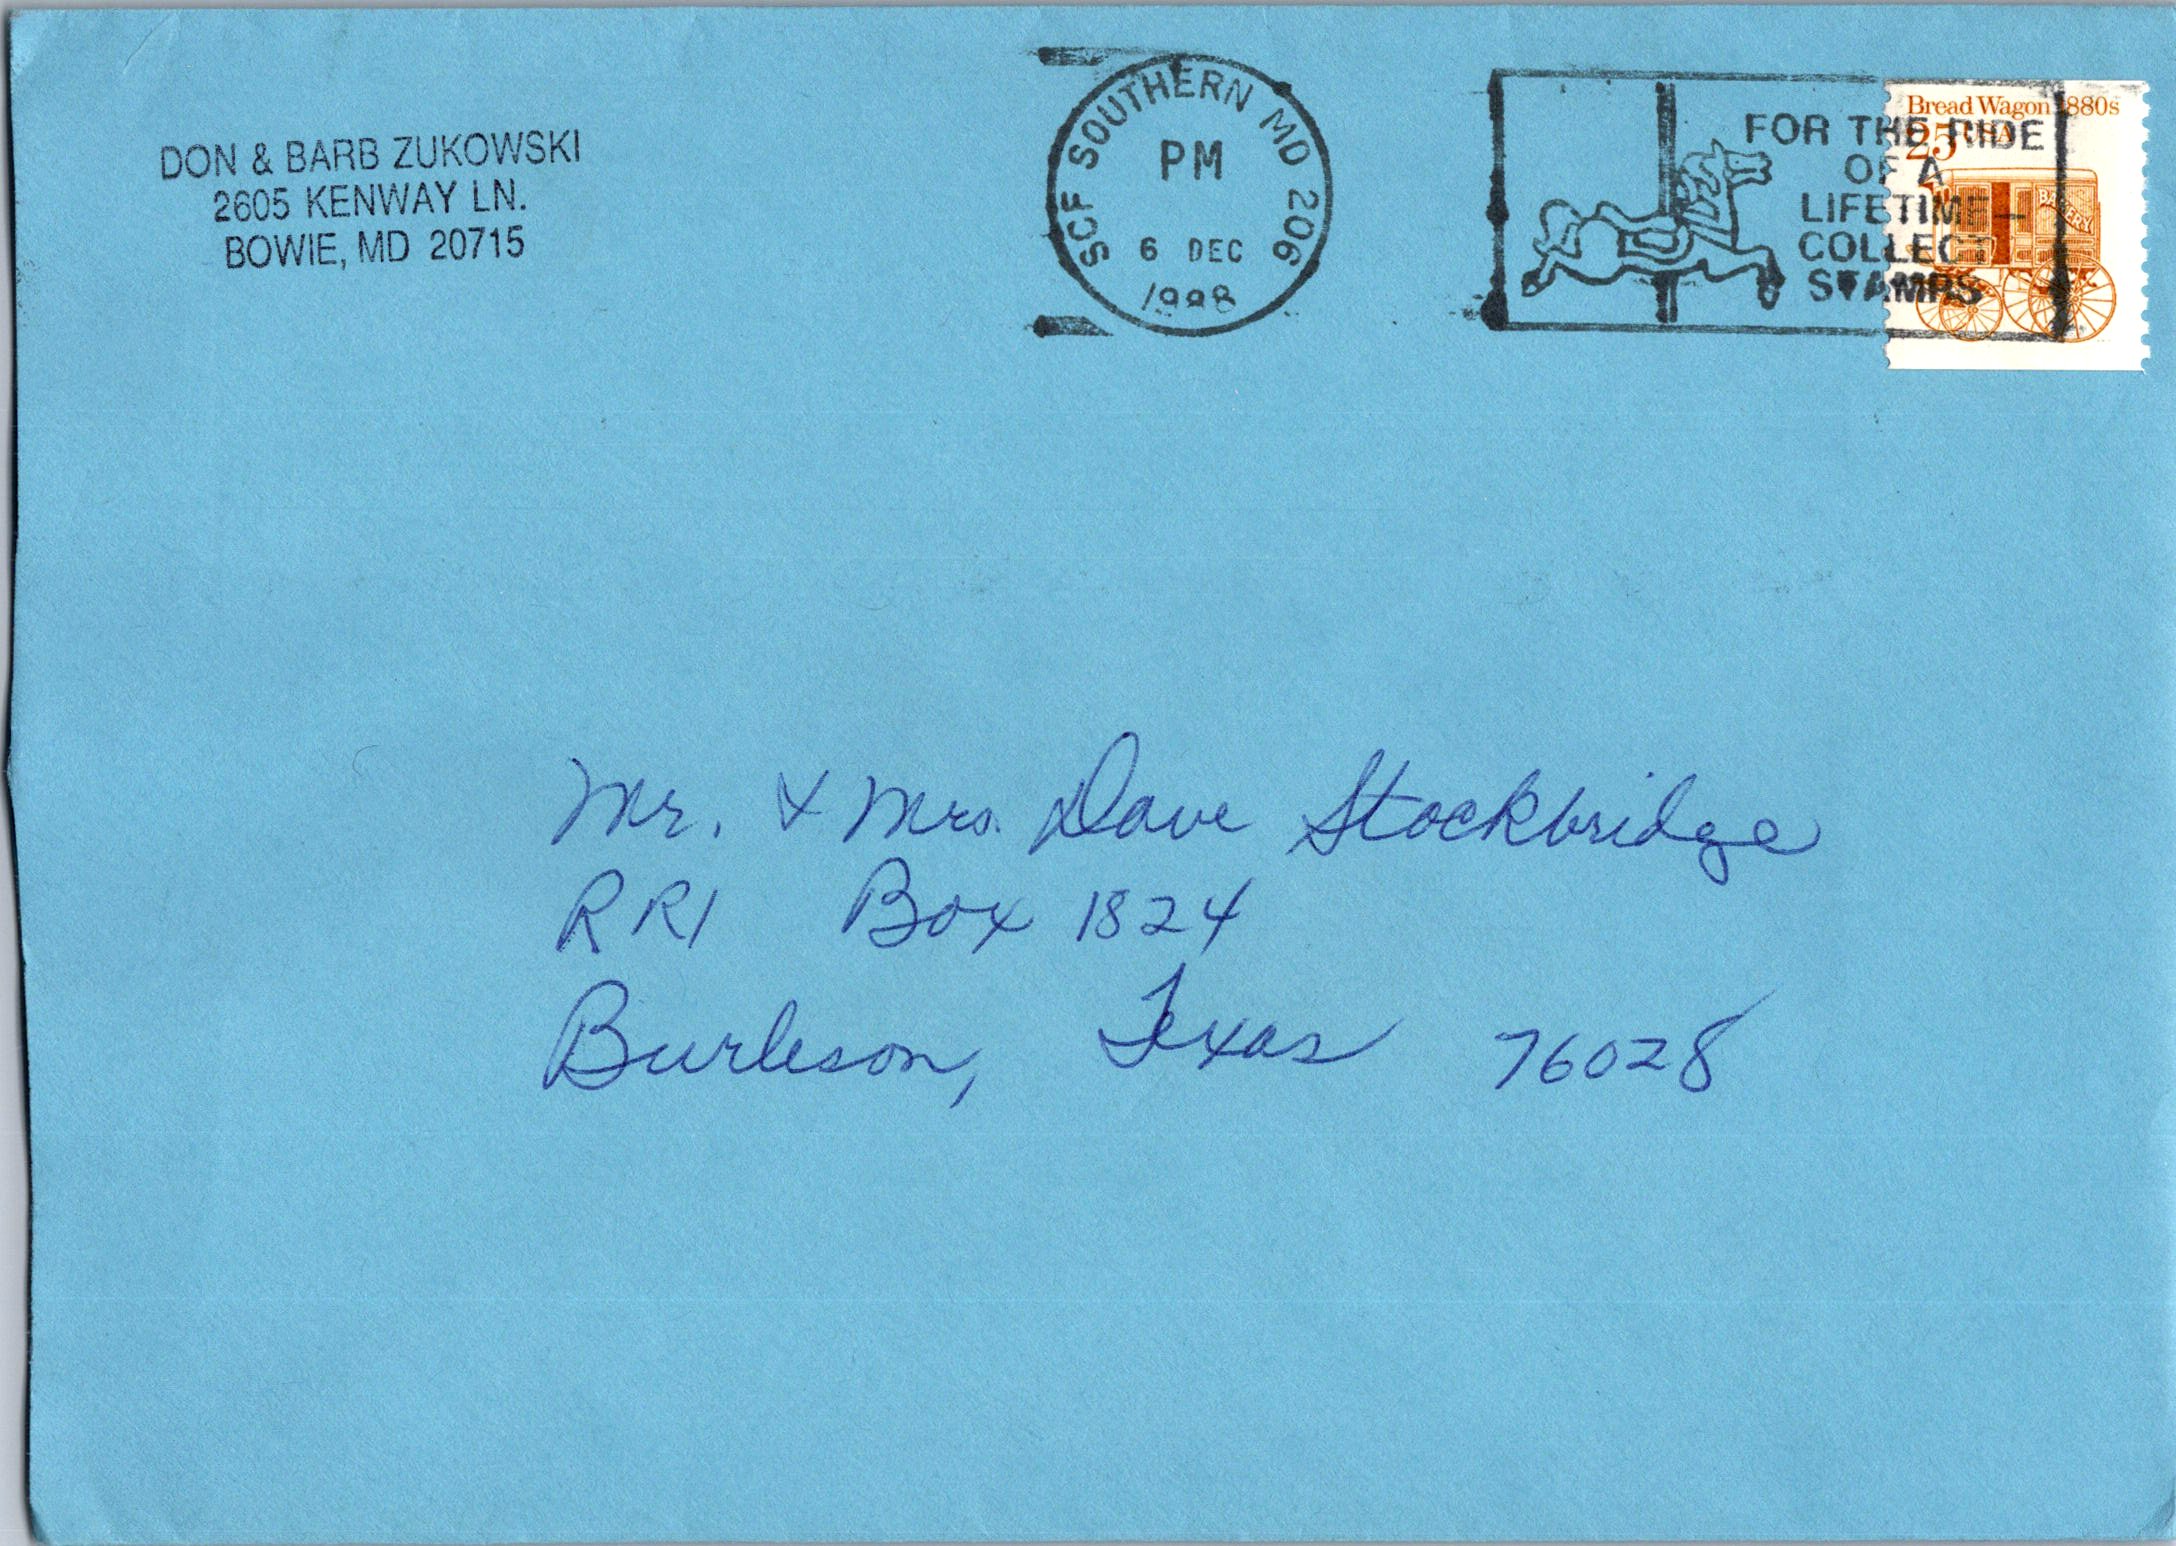 DON & BARB ZUKOWSKI
2605 KENWAY LN.
BOWIE, MD 20715
SCF SOUTHERN MD 206
PM
6 DEC
FOR THE RIDE
OF A
LIFETIME—
COLLECT
STAMPS
Bread Wagon 1880s
25 USA
BAKERY
Mr. & Mrs. Dave Stockbridge
RR1 Box 1824
Burleson, Texas 76028